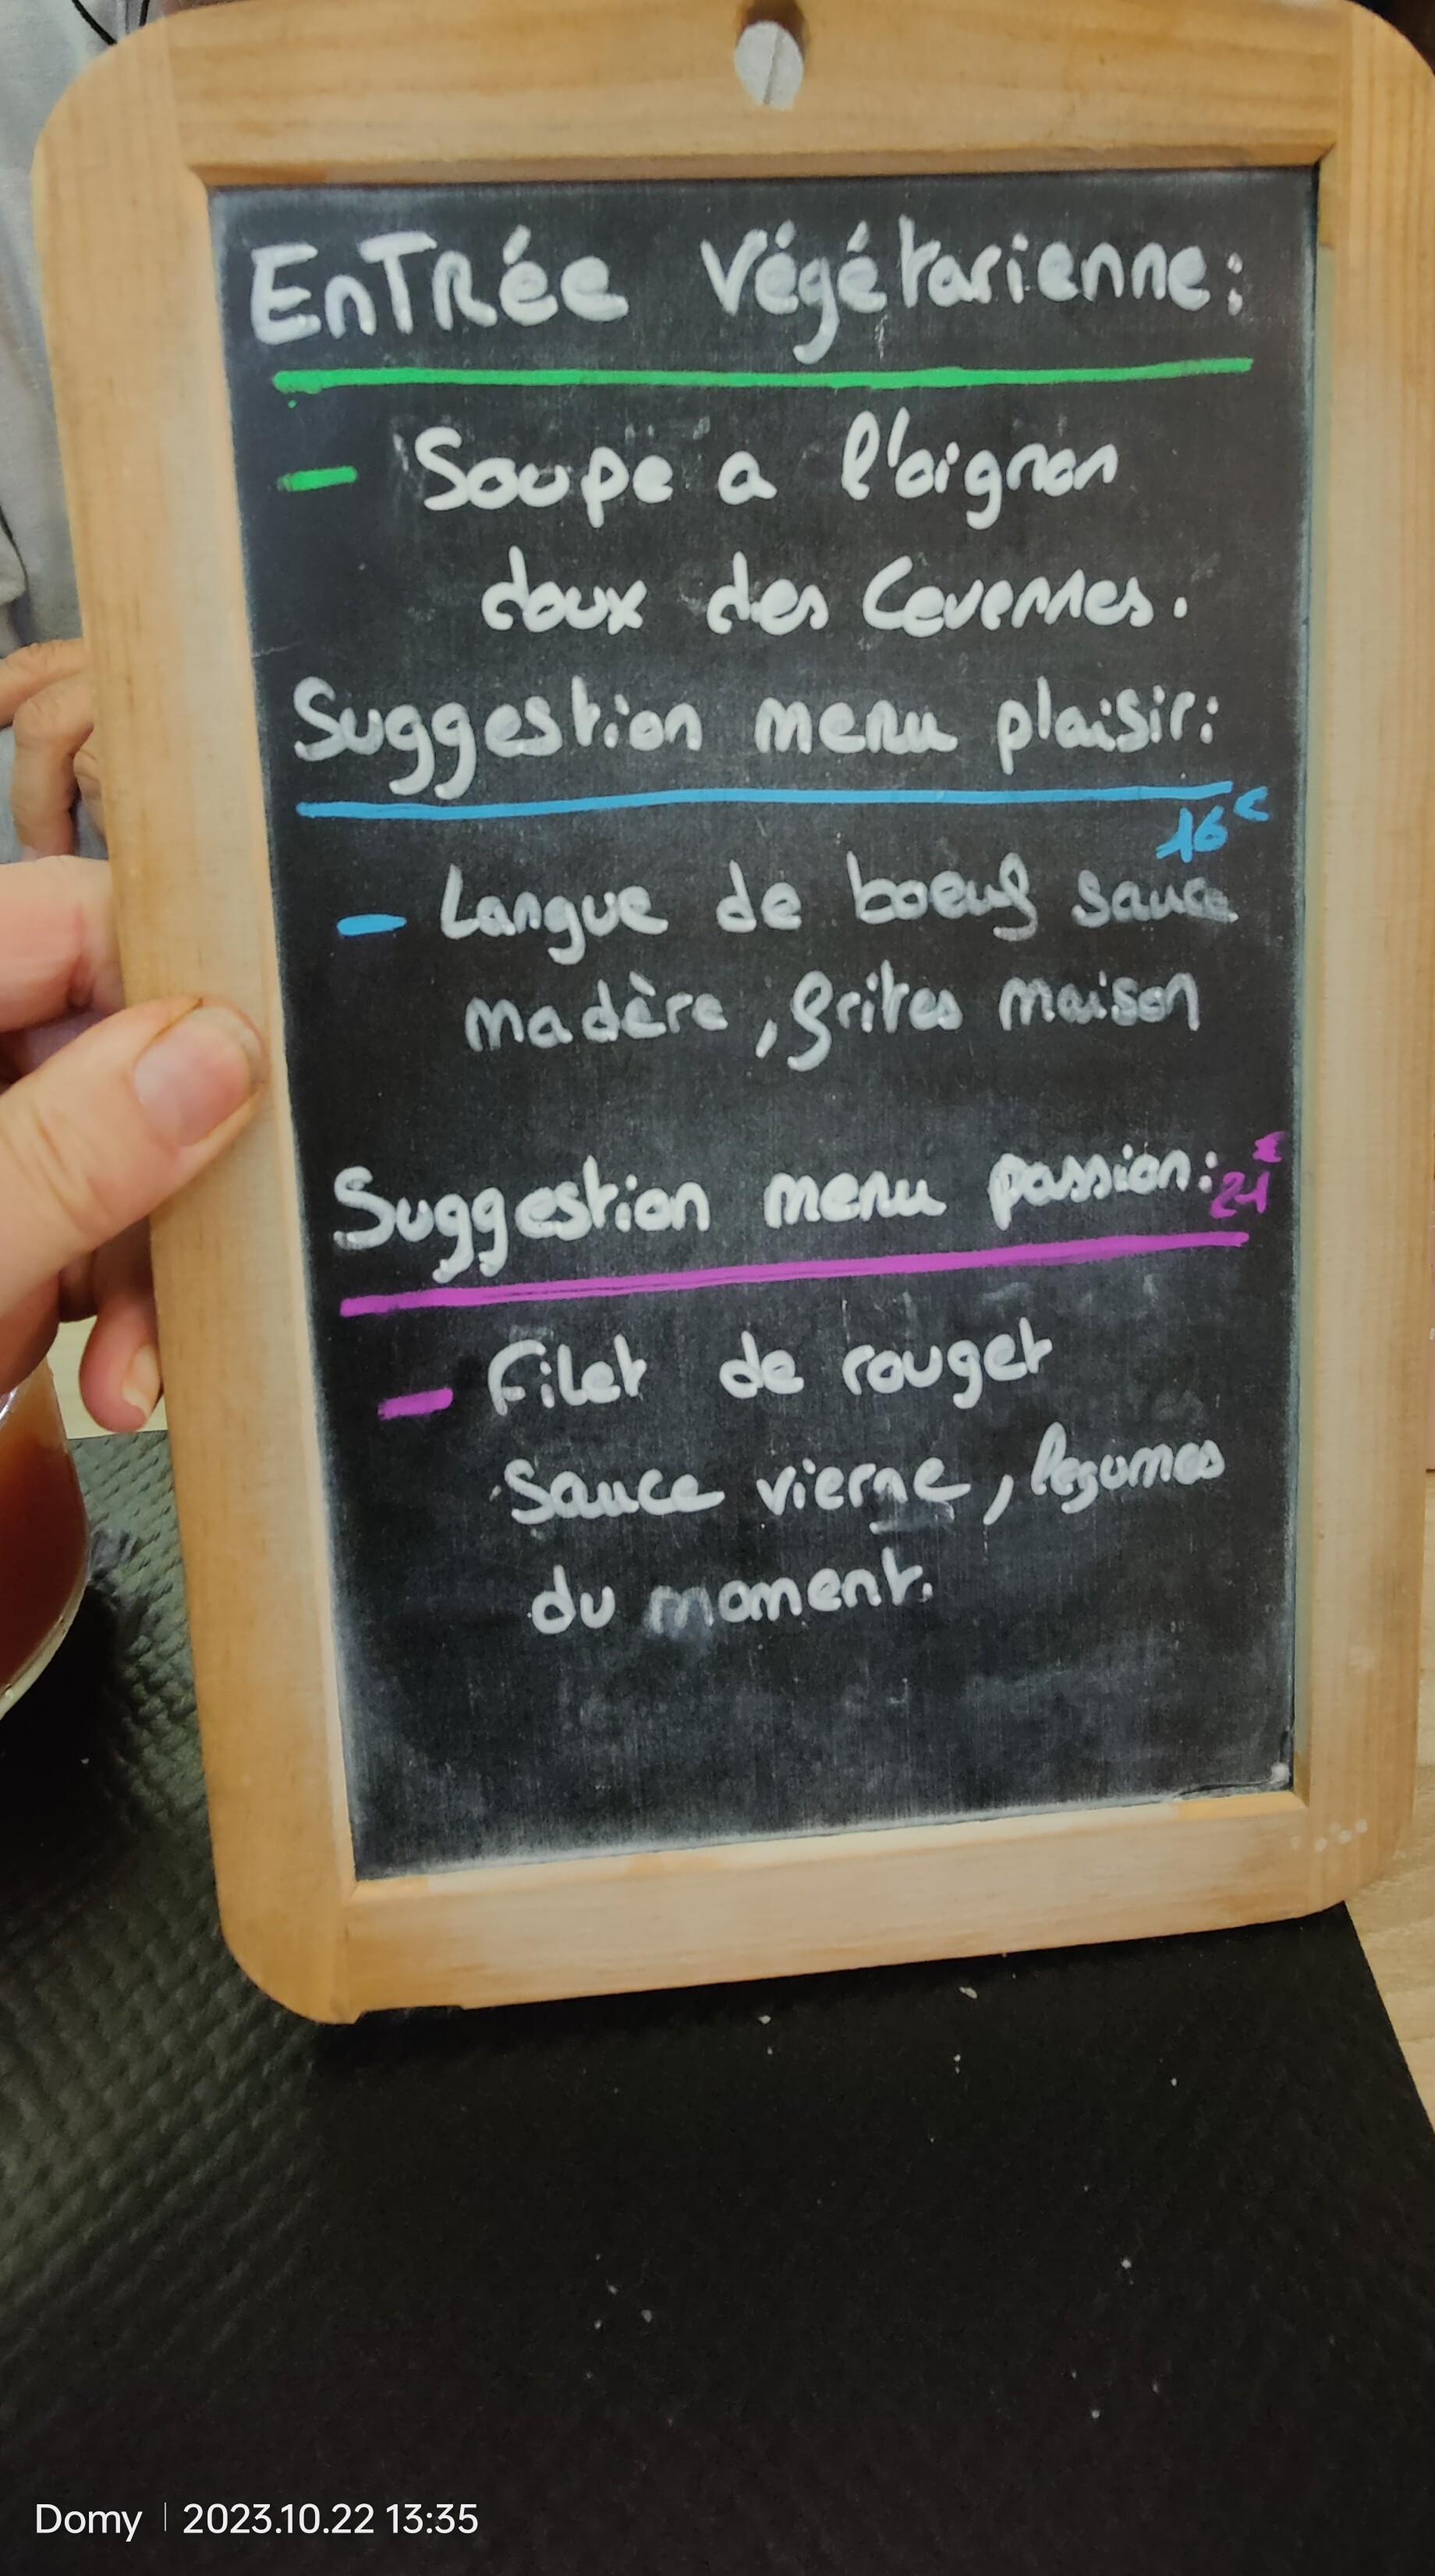 EnTRée végétarienne:
- Soupe a l'oignon
doux des Cevennes.
Suggestion menu plaisir:
16€
- Langue de boeuf sauce
madère, frites maison
Suggestion menu passion: 21€
- Filet de rouget
sauce vierne, legumes
du moment.
Domy | 2023.10.22 13:35